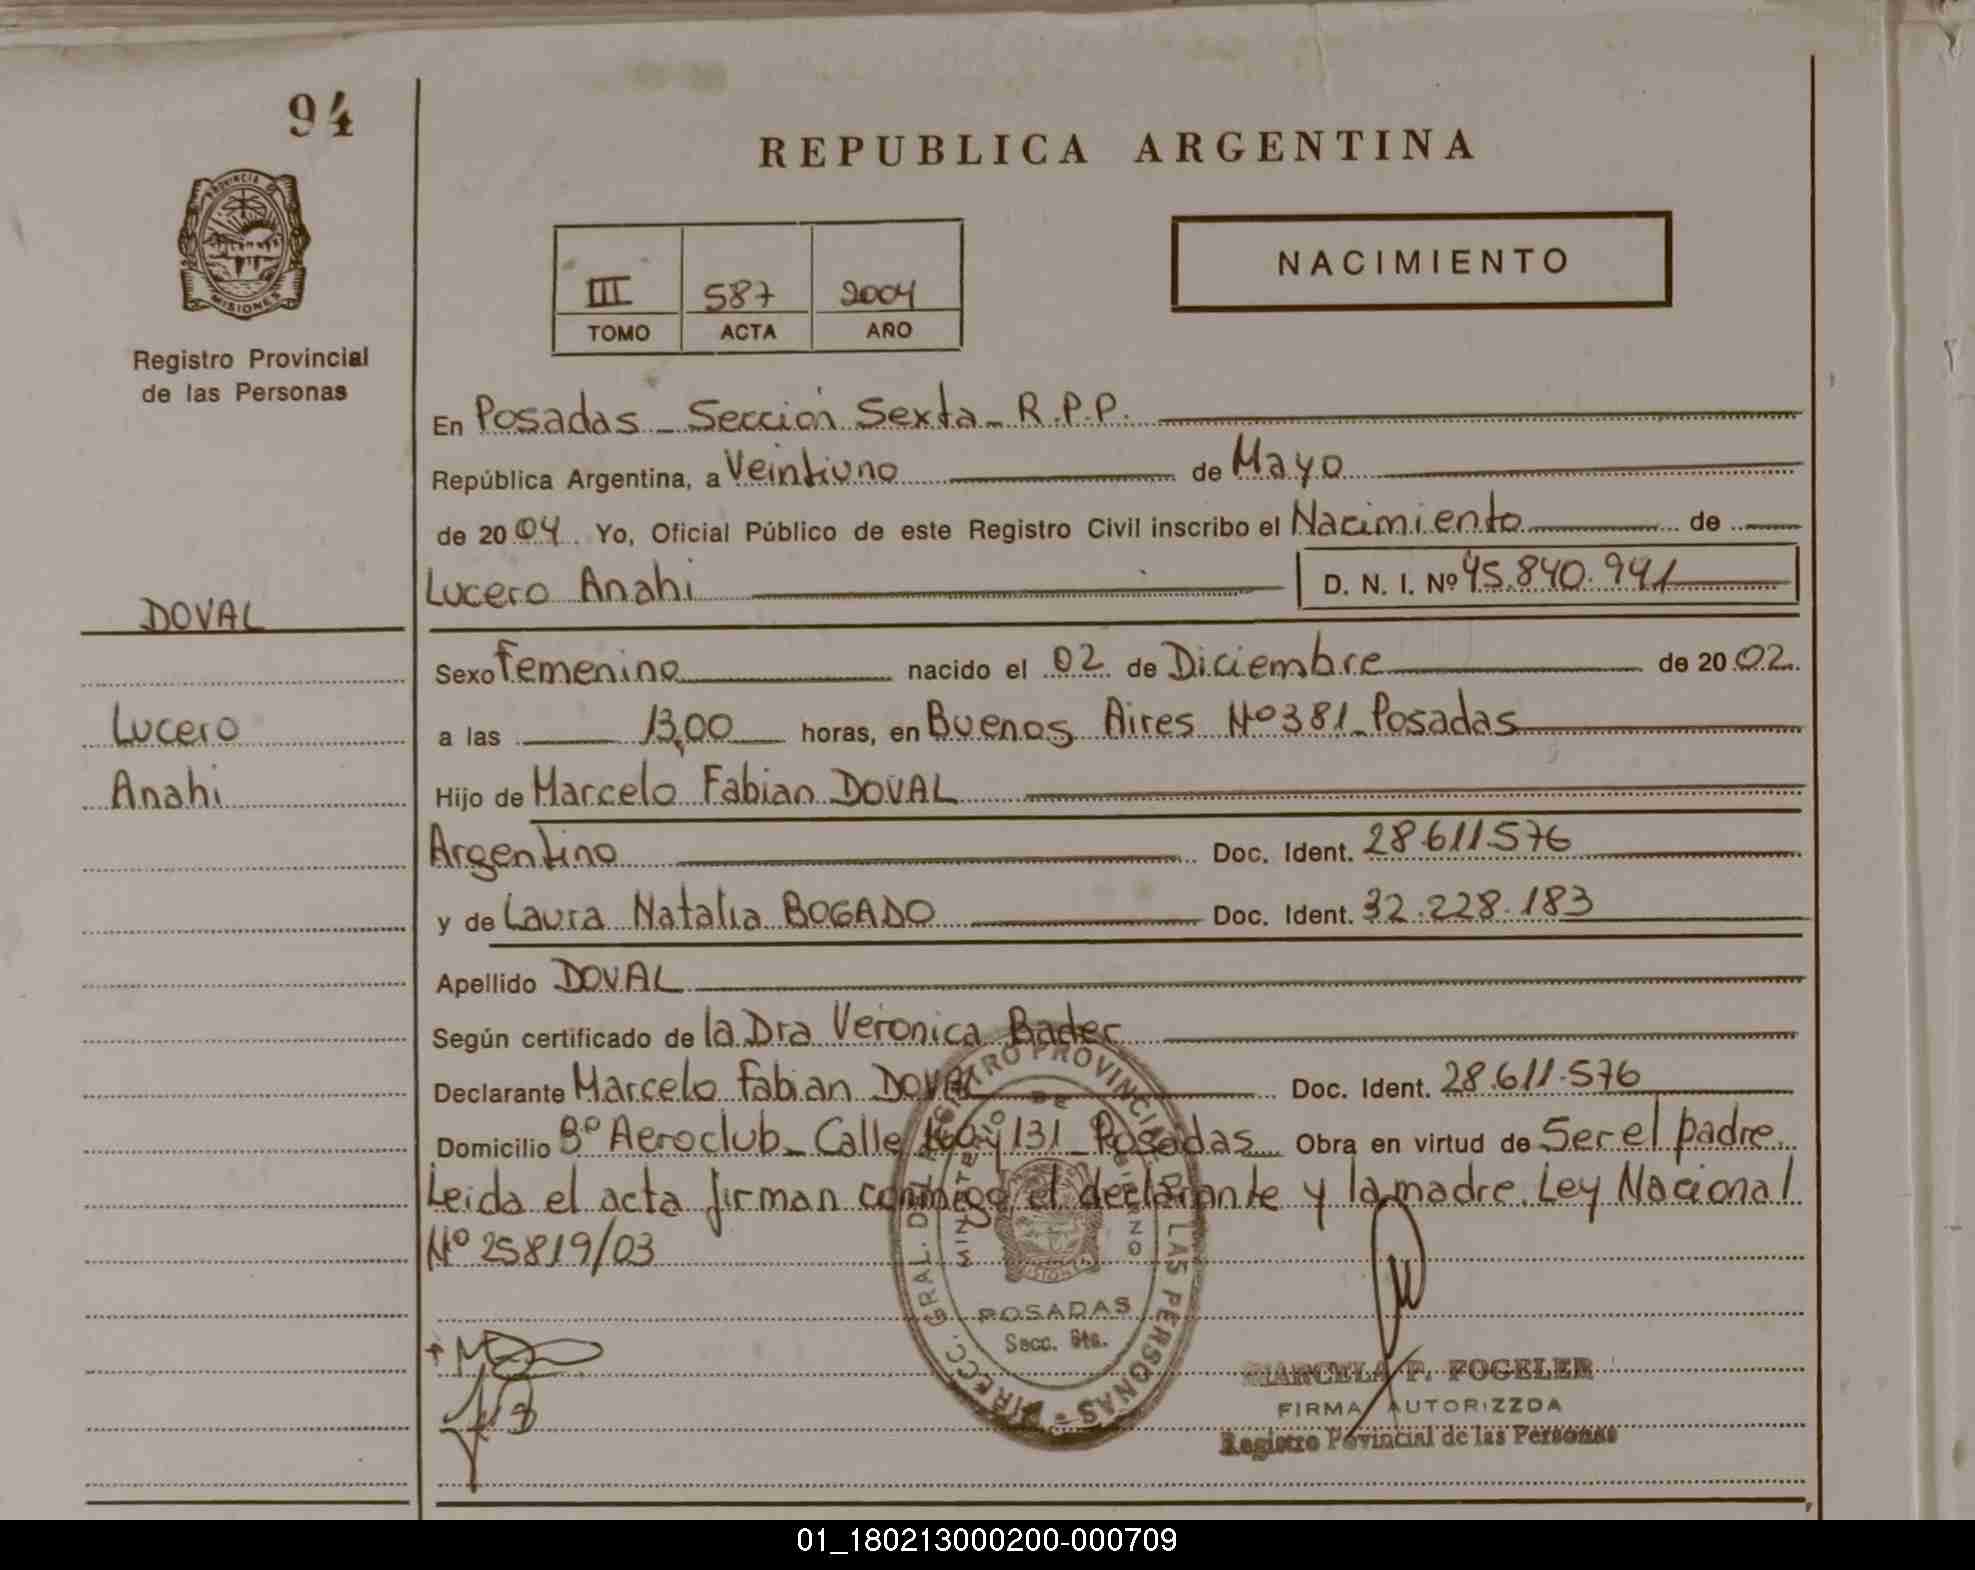 94
REPUBLICA ARGENTINA
PROVINCIA DE
MISIONES
Registro Provincial
de las Personas
III 587 2004
TOMO ACTA AÑO
NACIMIENTO
En Posadas - Sección Sexta - R.P.P.
República Argentina, a Veintiuno de Mayo
de 2004 Yo, Oficial Público de este Registro Civil inscribo el Nacimiento de
Lucero Anahi D. N. I. Nº 45.840.941
DOVAL
Lucero
Anahi
Sexo Femenino nacido el 02 de Diciembre de 2002
a las 13,00 horas, en Buenos Aires Nº 381 - Posadas
Hijo de Marcelo Fabian DOVAL
Argentino Doc. Ident. 28.611.576
y de Laura Natalia BOGADO Doc. Ident. 32.228.183
Apellido DOVAL
Según certificado de la Dra Veronica Bader
Declarante Marcelo Fabian DOVAL Doc. Ident. 28.611.576
Domicilio Bº Aeroclub - Calle 160 y 131 - Posadas Obra en virtud de Ser el padre
Leida el acta firman conmigo, el declarante y la madre. Ley Nacional
Nº 25819/03
DIRECC. GRAL. DEL REGISTRO PROVINCIAL DE LAS PERSONAS
MINISTERIO DE GOBIERNO
MISIONES
POSADAS
Secc. 6ta.
MARCELA P. FOGELER
FIRMA AUTORIZZDA
Registro Povincial de las Personas
01_180213000200-000709